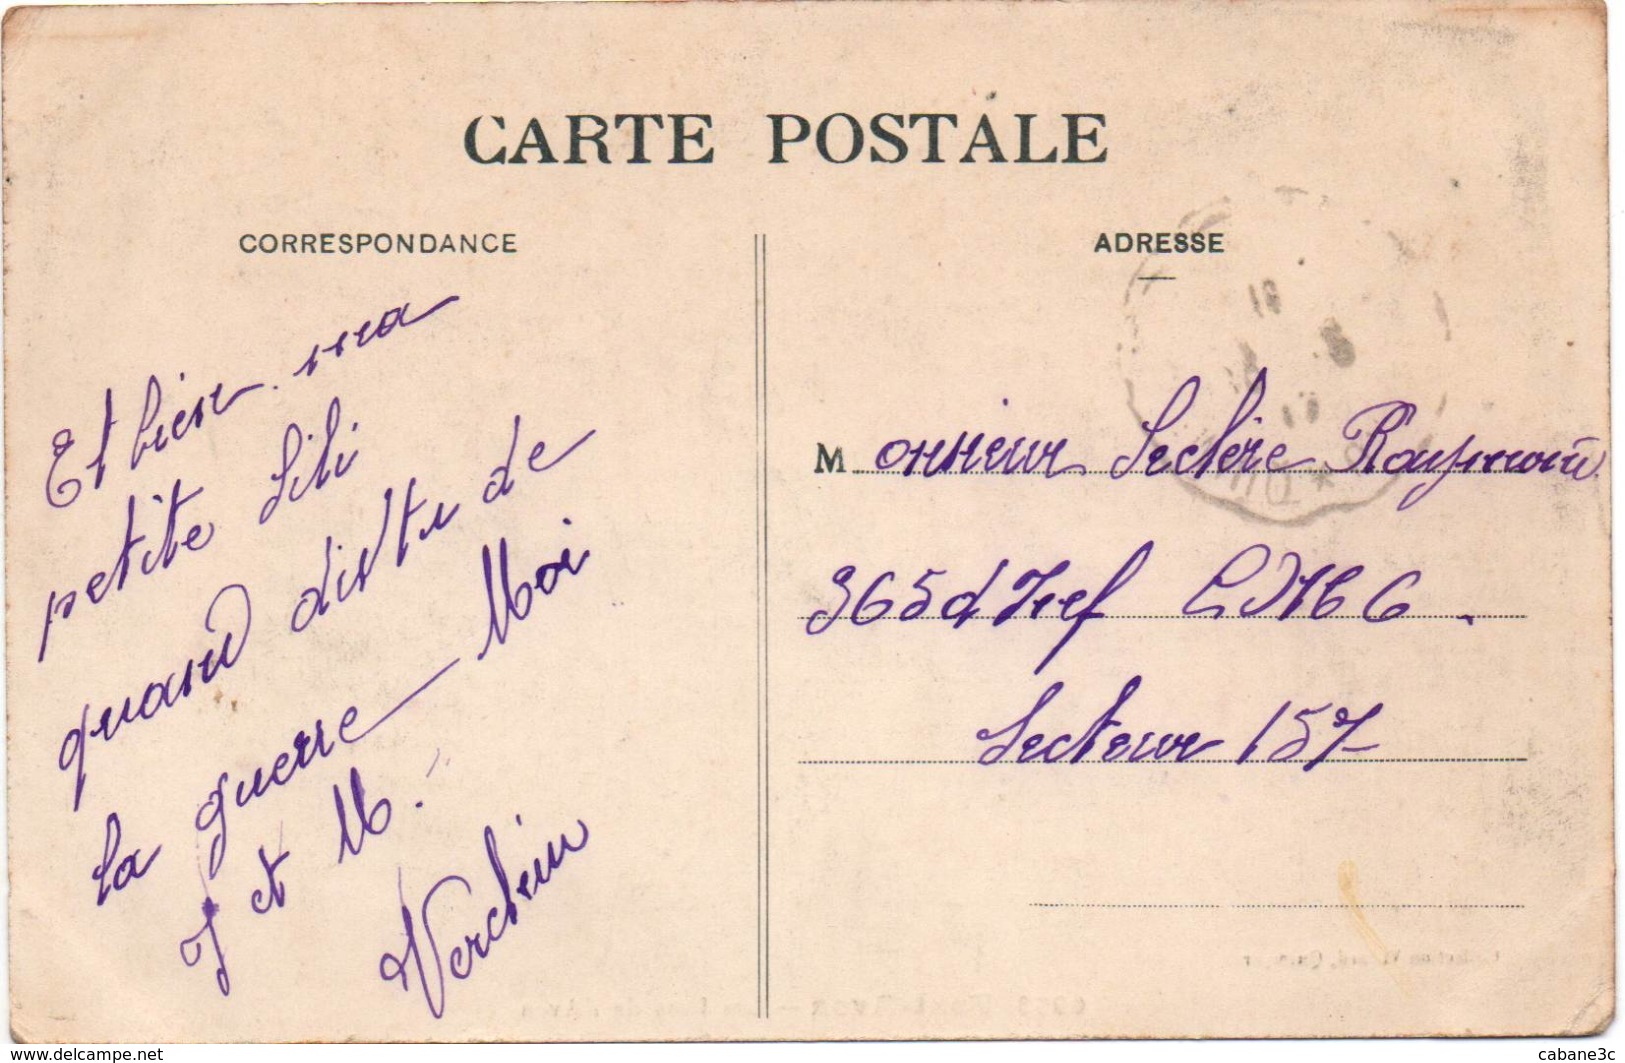 CARTE POSTALE
CORRESPONDANCE
ADRESSE
Et bien ma
petite Lili
quand dis tu de
la guerre Moi
J et M.
Verchin
Monsieur Leclère Raymond
365 d'Inf
Secteur 157
delcampe.net
cabane3c